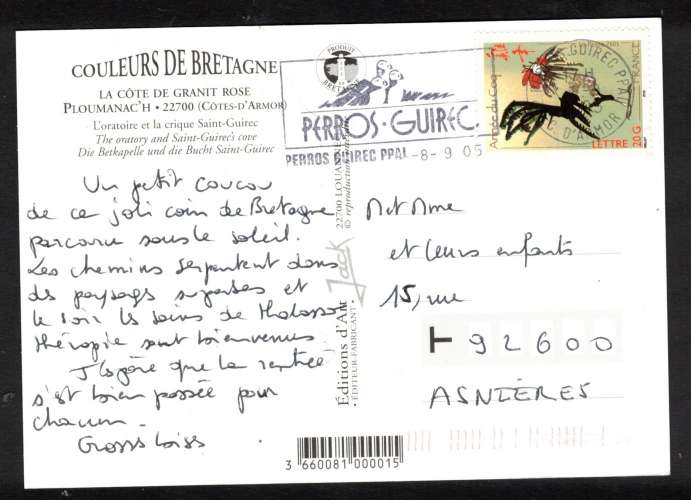 COULEURS DE BRETAGNE
LA CÔTE DE GRANIT ROSE
PLOUMANAC'H • 22700 (CÔTES-D'ARMOR)
L'oratoire et la crique Saint-Guirec
The oratory and Saint-Guirec's cove
Die Betkapelle und die Bucht Saint-Guirec
PRODUIT EN BRETAGNE
PERROS-GUIREC
PERROS GUIREC PPAL -8-9 05
GUIREC PPAL
C. D'ARMOR
Année du Coq
LETTRE 20G
FRANCE
Un petit coucou
de ce joli coin de Bretagne
parcouru sous le soleil.
Les chemins serpentent dans
des paysages superbes et
le soir les soins de thalasso-
thérapie sont bienvenus.
J'espère que la rentrée
s'est bien passée pour
chacun.
Gross bises
22700 LOUANNEC
© reproduction
Jack
Éditions d'Art
• ÉDITEUR-FABRICANT •
M et Mme
et leurs enfants
15, rue
T 92600
ASNIÈRES
3 660081 000015